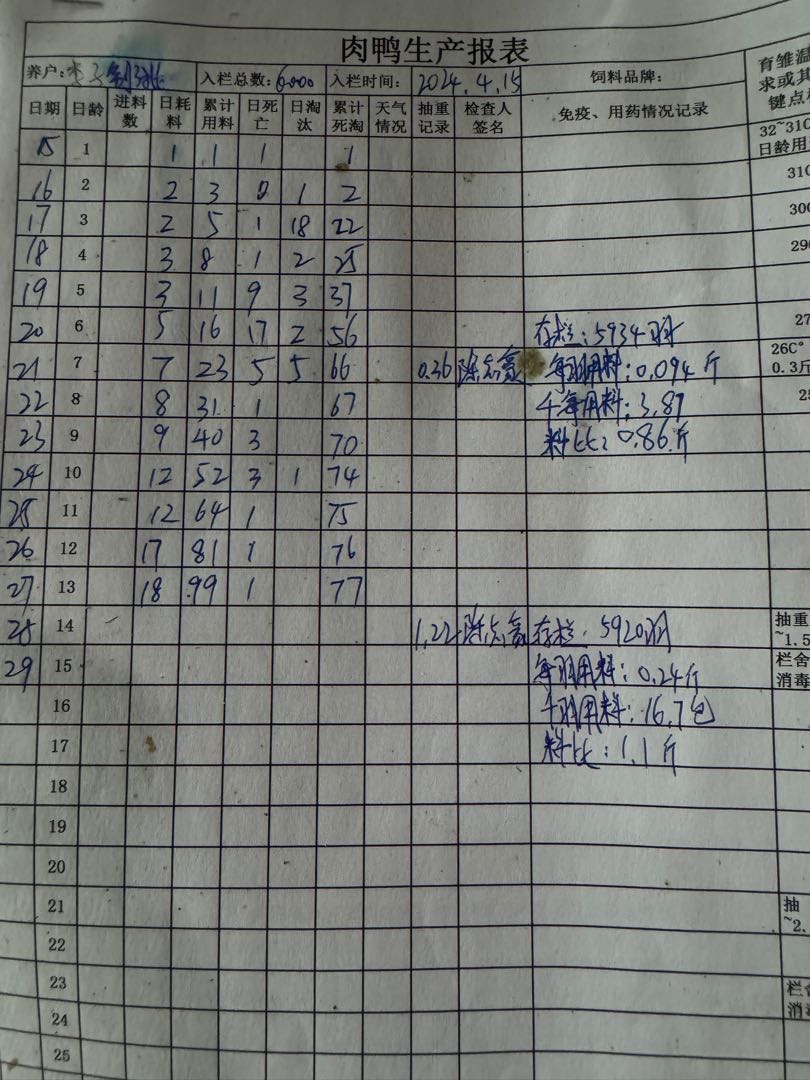 肉鸭生产报表
养户: 入栏总数: 6000 入栏时间: 2024.4.15 饲料品牌: 育雏温
求或其
键点
日期 日龄 进料数 日耗料 累计用料 日死亡 日淘汰 累计死淘 天气情况 抽重记录 检查人签名 免疫、用药情况记录
32~31C
日龄用
15 1 1 1 1 1
16 2 2 3 0 1 2 31C
17 3 2 5 1 18 22 30
18 4 3 8 1 2 25 29
19 5 3 11 9 3 37
20 6 5 16 17 2 56 存栏:5934羽 27
21 7 7 23 5 5 66 0.36 陈志豪 每羽用料:0.094斤 26C°
0.3斤
22 8 8 31 1 67 千每用料:3.87 25
23 9 9 40 3 70 料比:0.86斤
24 10 12 52 3 1 74
25 11 12 64 1 75
26 12 17 81 1 76
27 13 18 99 1 77
28 14 1.22 陈志豪 存栏:5920羽 抽重
~1.5
29 15 每羽用料:0.24斤 栏舍
消毒
16 千羽用料:16.7包
17 料比:1.1斤
18
19
20
21 抽
~2.
22
23 栏舍
消
24
25